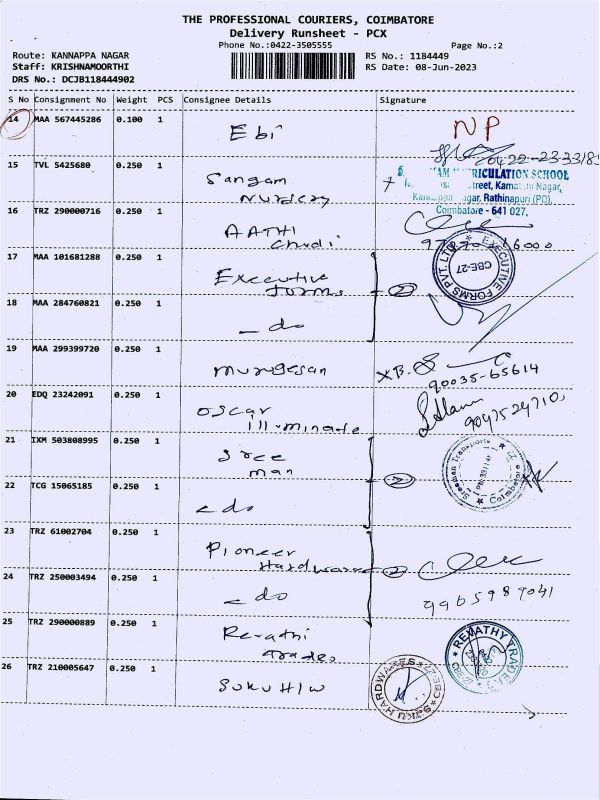 THE PROFESSIONAL COURIERS, COIMBATORE
Delivery Runsheet - PCX
Phone No.:0422-3505555 Page No.:2
Route: KANNAPPA NAGAR RS No.: 1184449
Staff: KRISHNAMOORTHI RS Date: 08-Jun-2023
DRS No.: DCJB118444902
S No Consignment No Weight PCS Consignee Details Signature
14 MAA 567445286 0.100 1 Ebi NP
0422-233318
15 TVL 5425680 0.250 1 Sangam Nursery
MATRICULATION SCHOOL
Street, Kamaraj Nagar,
Kannappa Nagar, Rathinapuri (PO),
Coimbatore - 641 027.
16 TRZ 290000716 0.250 1 AATHI
6000
17 MAA 101681288 0.250 1 Executive forms 2
EXECUTIVE FORMS PVT. LTD. CBE-27
18 MAA 284760821 0.250 1 - do
19 MAA 299399720 0.250 1 murugesan
90035-65614
20 EDQ 23242091 0.250 1 oscar ill-minate
21 IXM 503808995 0.250 1 Sree man 2
Sreeman Transports Coimbatore
22 TCG 15065185 0.250 1 - do
23 TRZ 61002704 0.250 1 Pioneer Hardwares 2
24 TRZ 250003494 0.250 1 - do
9965989041
25 TRZ 290000889 0.250 1 Revathi trades
REVATHY TRADE
26 TRZ 210005647 0.250 1 SUKU H/W
SUKU HARDWARES